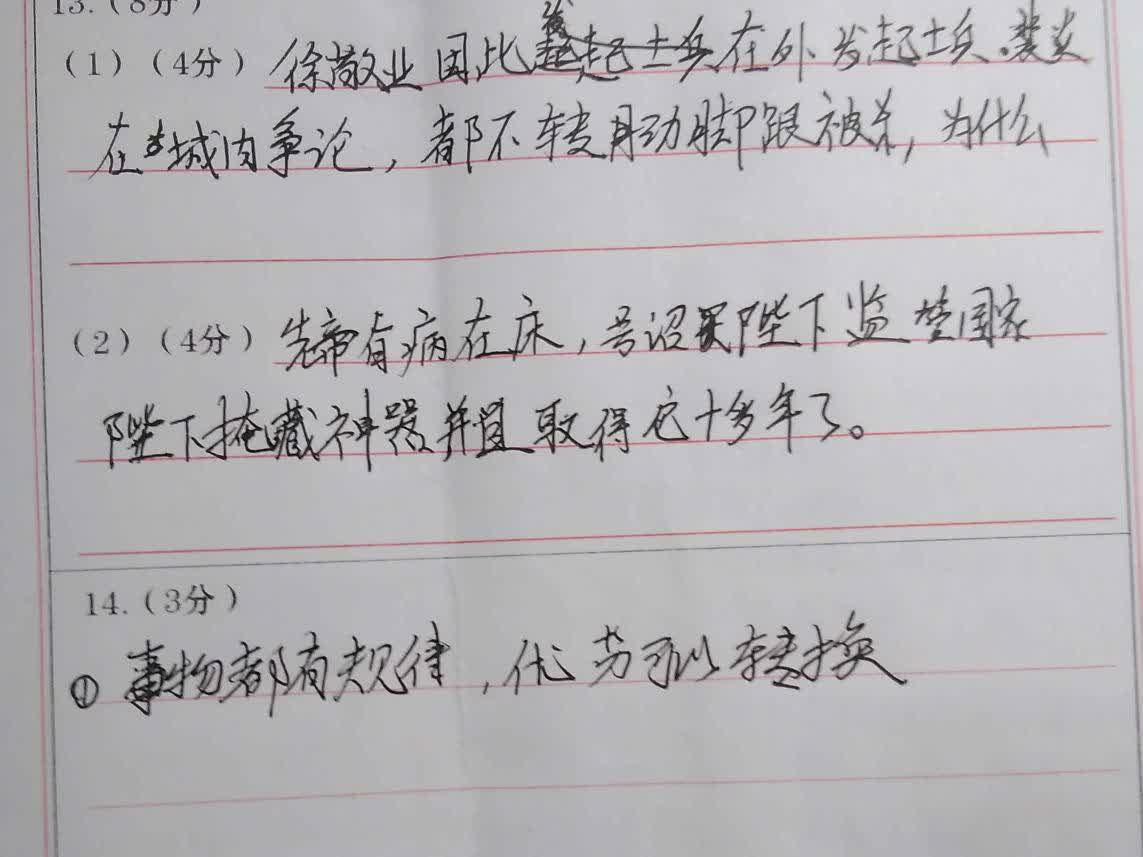 13.（8分）
（1）（4分）徐敬业因此在外发起士兵.裴炎
在城内争论，都不转动脚跟被杀，为什么
（2）（4分）先帝有病在床，号诏陛下监国家
陛下掩藏神器并且取得它十多年了。
14.（3分）
① 事物都有规律，优劣可以转换